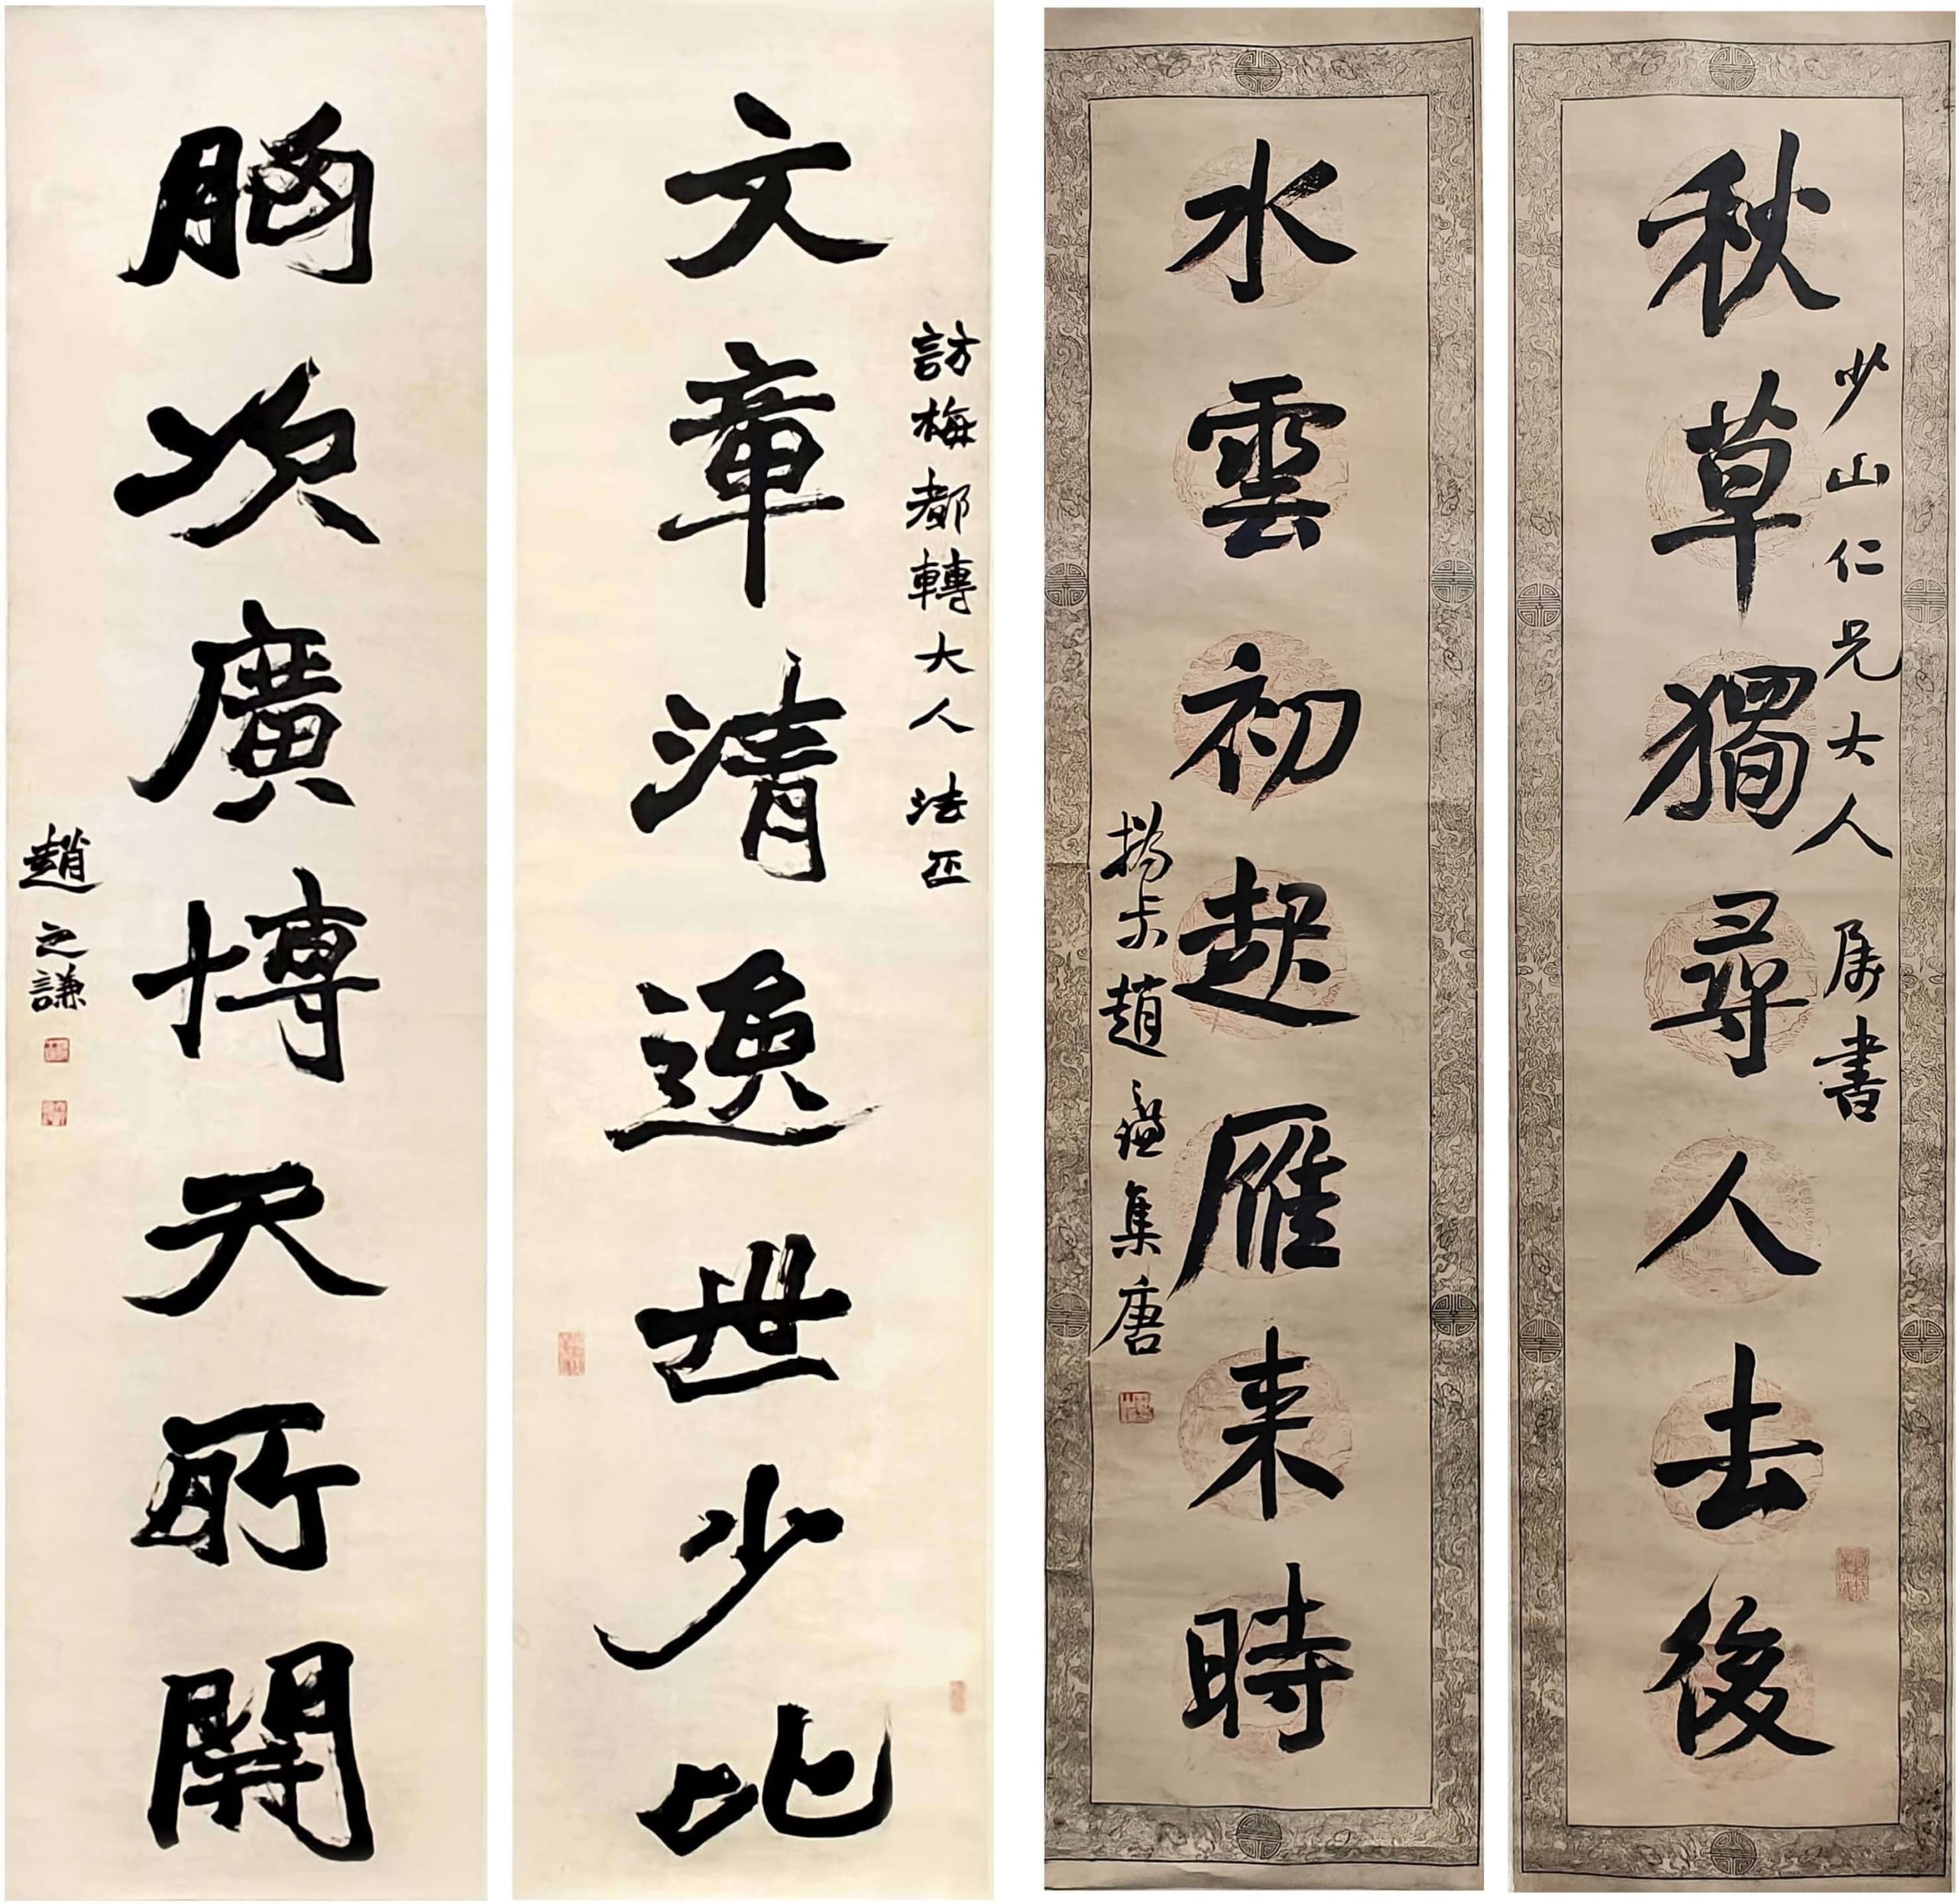 秋草獨尋人去後
少山仁兄大人属書
水雲初起雁来時
撝叔趙之謙集唐
文章清逸世少比
訪梅都轉大人法正
胷次廣博天所開
趙之謙